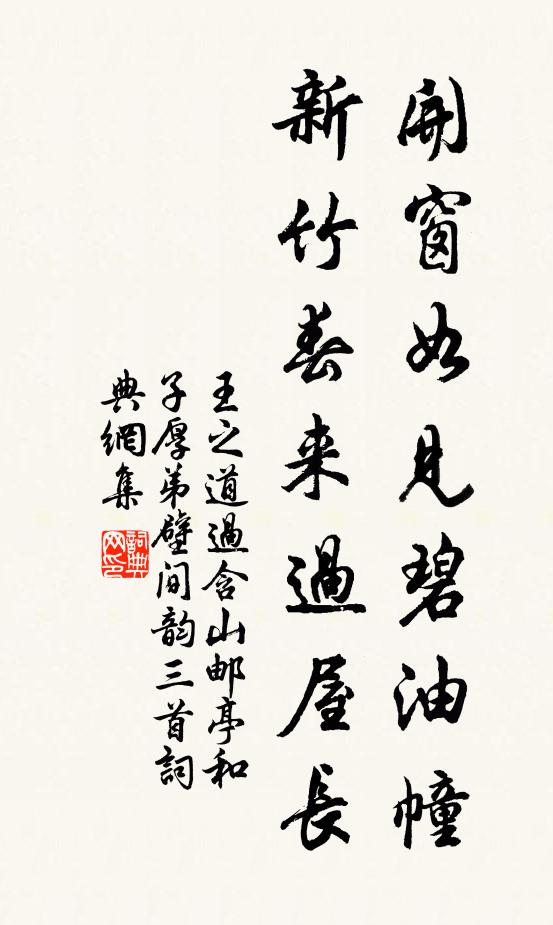 開窗如見碧油幢
新竹春来過屋長
王之道過含山邮亭和
子厚弟壁间韵三首詞
典網集
詞典网印